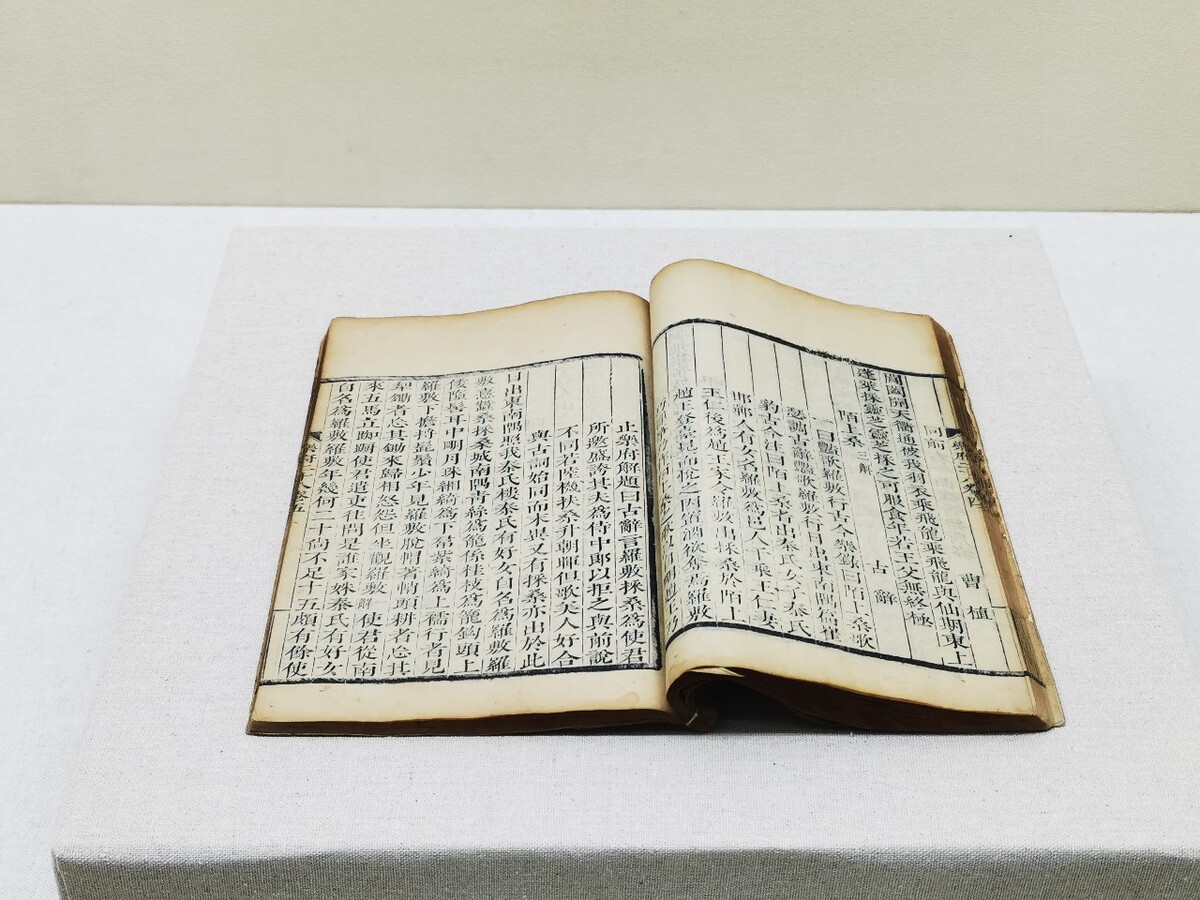 同前 曹植
閶闔開天衢通彼我羽衣乘飛龍乘飛龍與仙期東上
蓬萊採靈芝靈芝採之可服食年若王父無終極
陌上桑 三解 古辭
一曰豔歌羅敷行古今樂錄曰陌上桑歌
瑟調古辭豔歌羅敷行日出東南隅篇崔
豹古今注曰陌上桑者出秦氏女子秦氏
邯鄲人有女名羅敷爲邑人千乘王仁妻
王仁後爲趙王家令羅敷出採桑於陌上
趙王登臺見而悅之因置酒欲奪焉羅敷
止樂府解題曰古辭言羅敷採桑爲使君
所邀盛誇其夫爲侍中郎以拒之與前說
不同若陸機扶桑升朝暉但歌美人好合
與古詞始同而末異又有採桑亦出於此
日出東南隅照我秦氏樓秦氏有好女自名爲羅敷羅
敷憙蠶桑採桑城南隅青絲爲籠係桂枝爲籠鈎頭上
倭墮髻耳中明月珠緗綺爲下帬紫綺爲上襦行者見
羅敷下擔捋髭鬚少年見羅敷脫帽著帩頭耕者忘其
犁鋤者忘其鋤來歸相怨怒但坐觀羅敷 解 使君從南
來五馬立踟躕使君遣吏往問是誰家姝秦氏有好女
自名爲羅敷羅敷年幾何二十尚不足十五頗有餘使